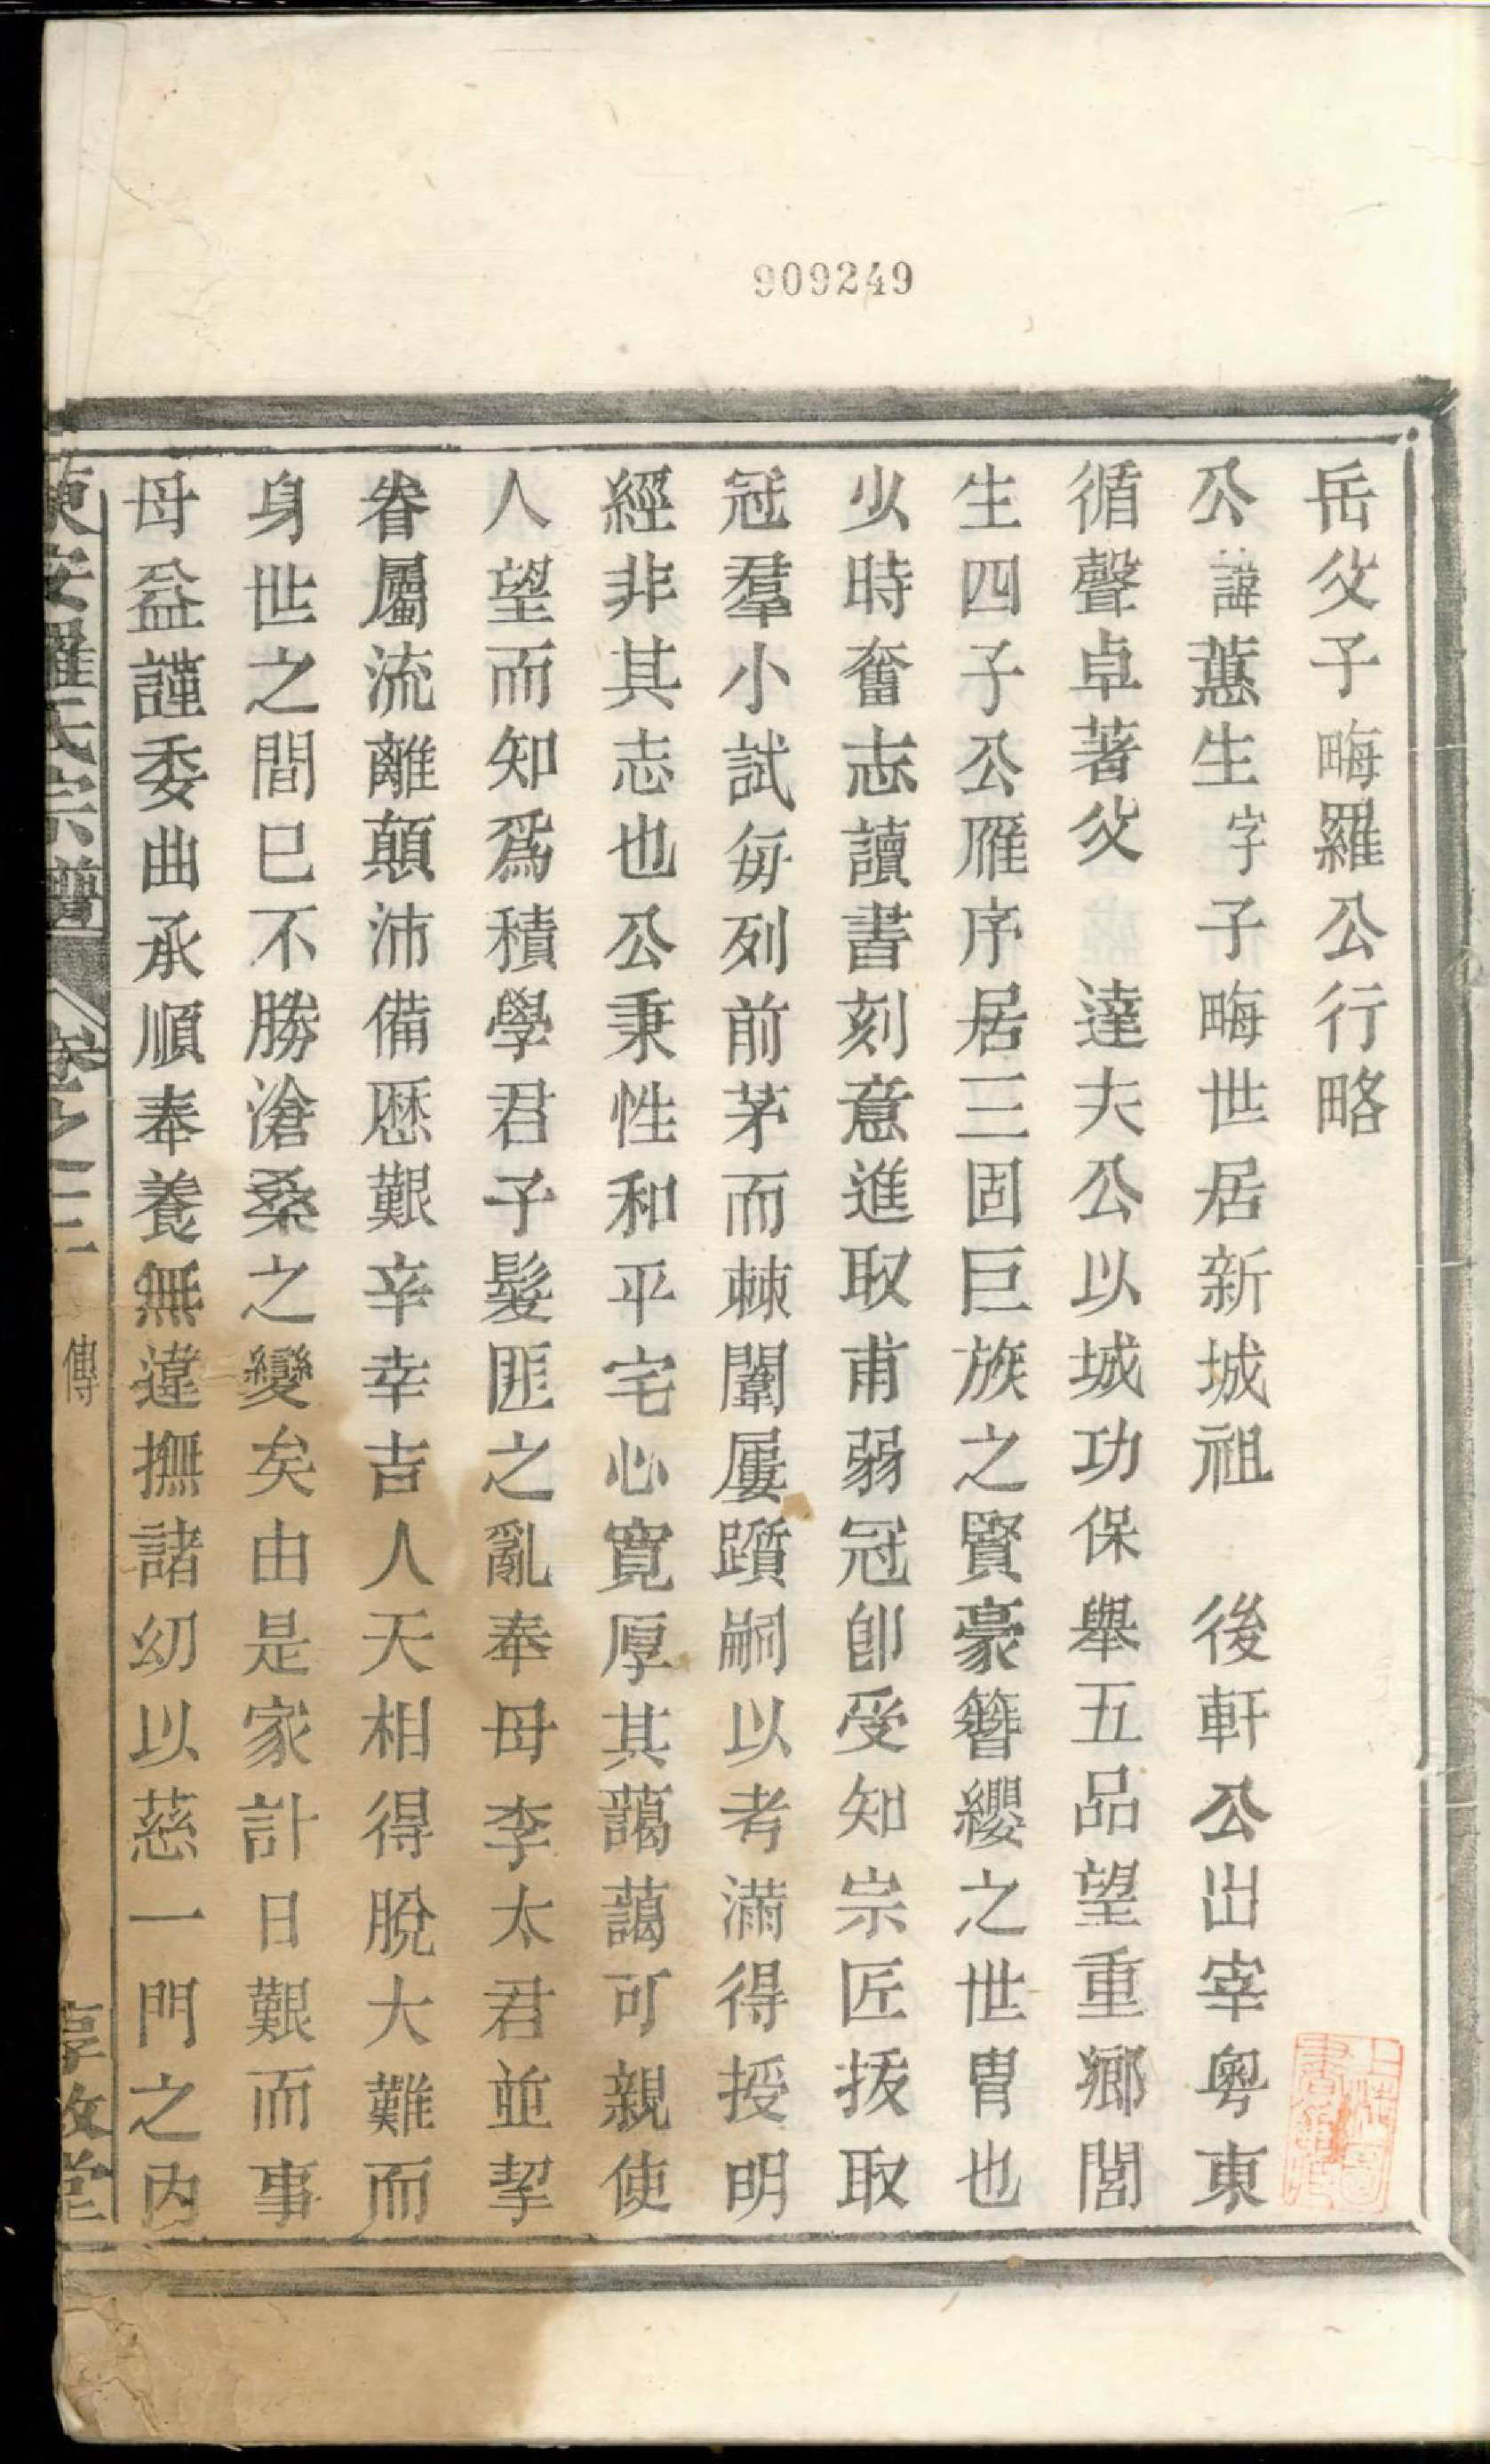 909249
岳父子畮羅公行略
公諱蕙生字子畮世居新城祖　後軒公出宰粵東
循聲卓著父　達夫公以城功保舉五品望重鄉閭
生四子公雁序居三固巨族之賢豪簪纓之世胄也
少時奮志讀書刻意進取甫弱冠卽受知宗匠拔取
冠羣小試每列前茅而棘闈屢躓嗣以考滿得授明
經非其志也公秉性和平宅心寬厚其藹藹可親使
人望而知爲積學君子髮匪之亂奉母李太君並挈
眷屬流離顛沛備歷艱辛幸吉人天相得脫大難而
身世之間已不勝滄桑之變矣由是家計日艱而事
母益謹委曲承順奉養無違撫諸幼以慈一門之內
羅氏宗譜　卷之　傳